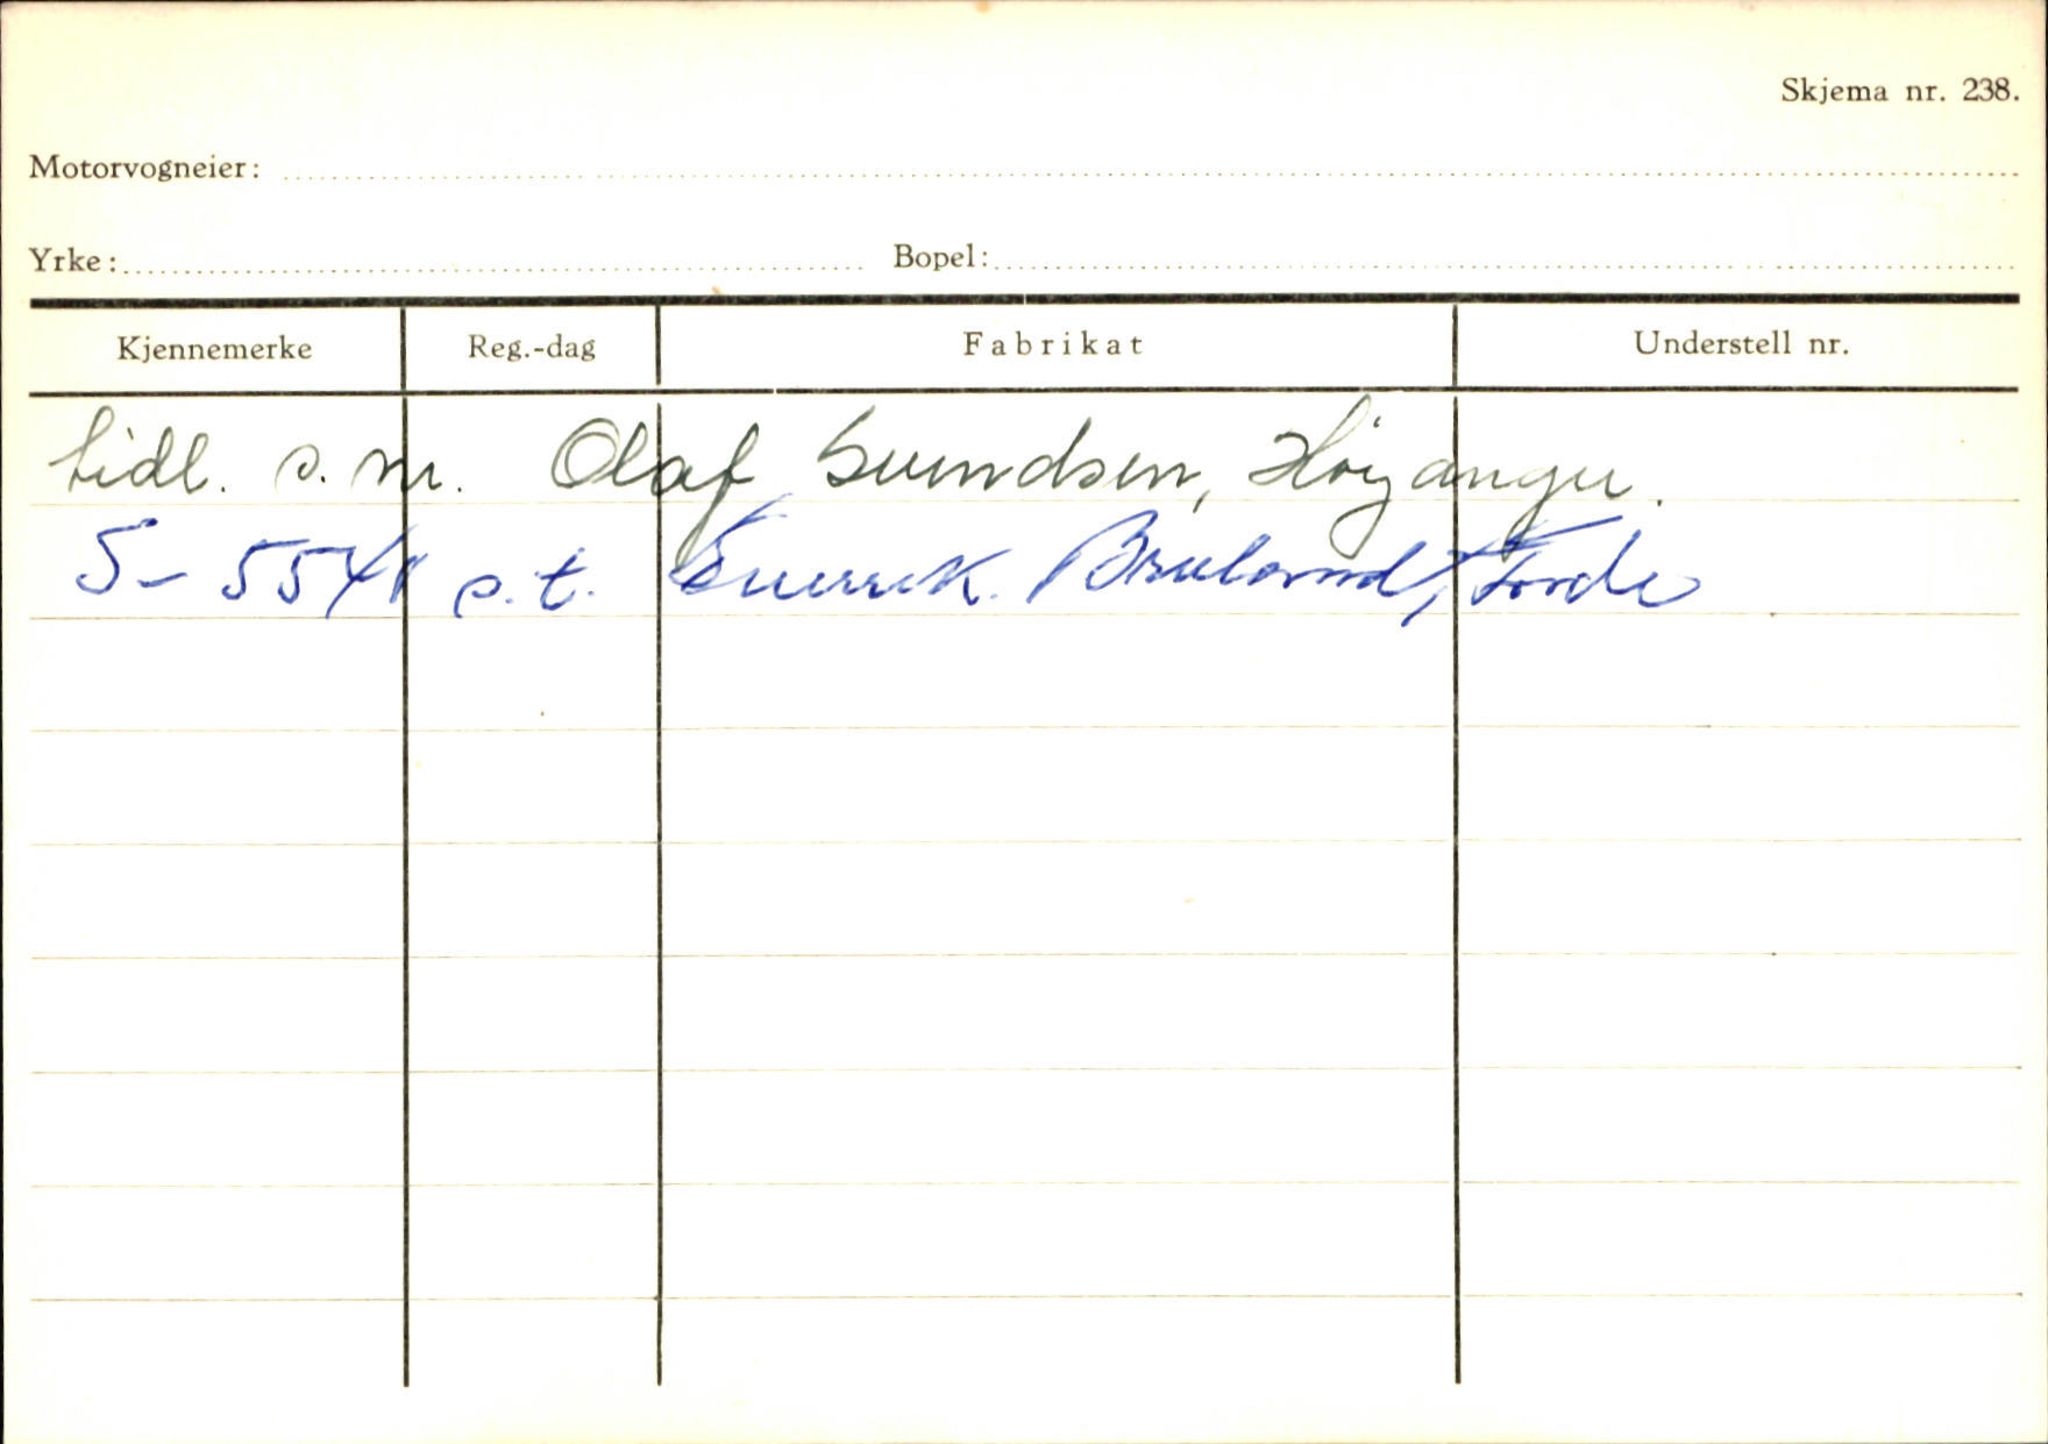 Skjema nr. 238.
Motorvogneier:
Yrke: Bopel:
Kjennemerke Reg.-dag Fabrikat Understell nr.
tidl. s. nr. Olaf Svendsen, Høyanger.
S- 5541 s.t. Bruland, Førde